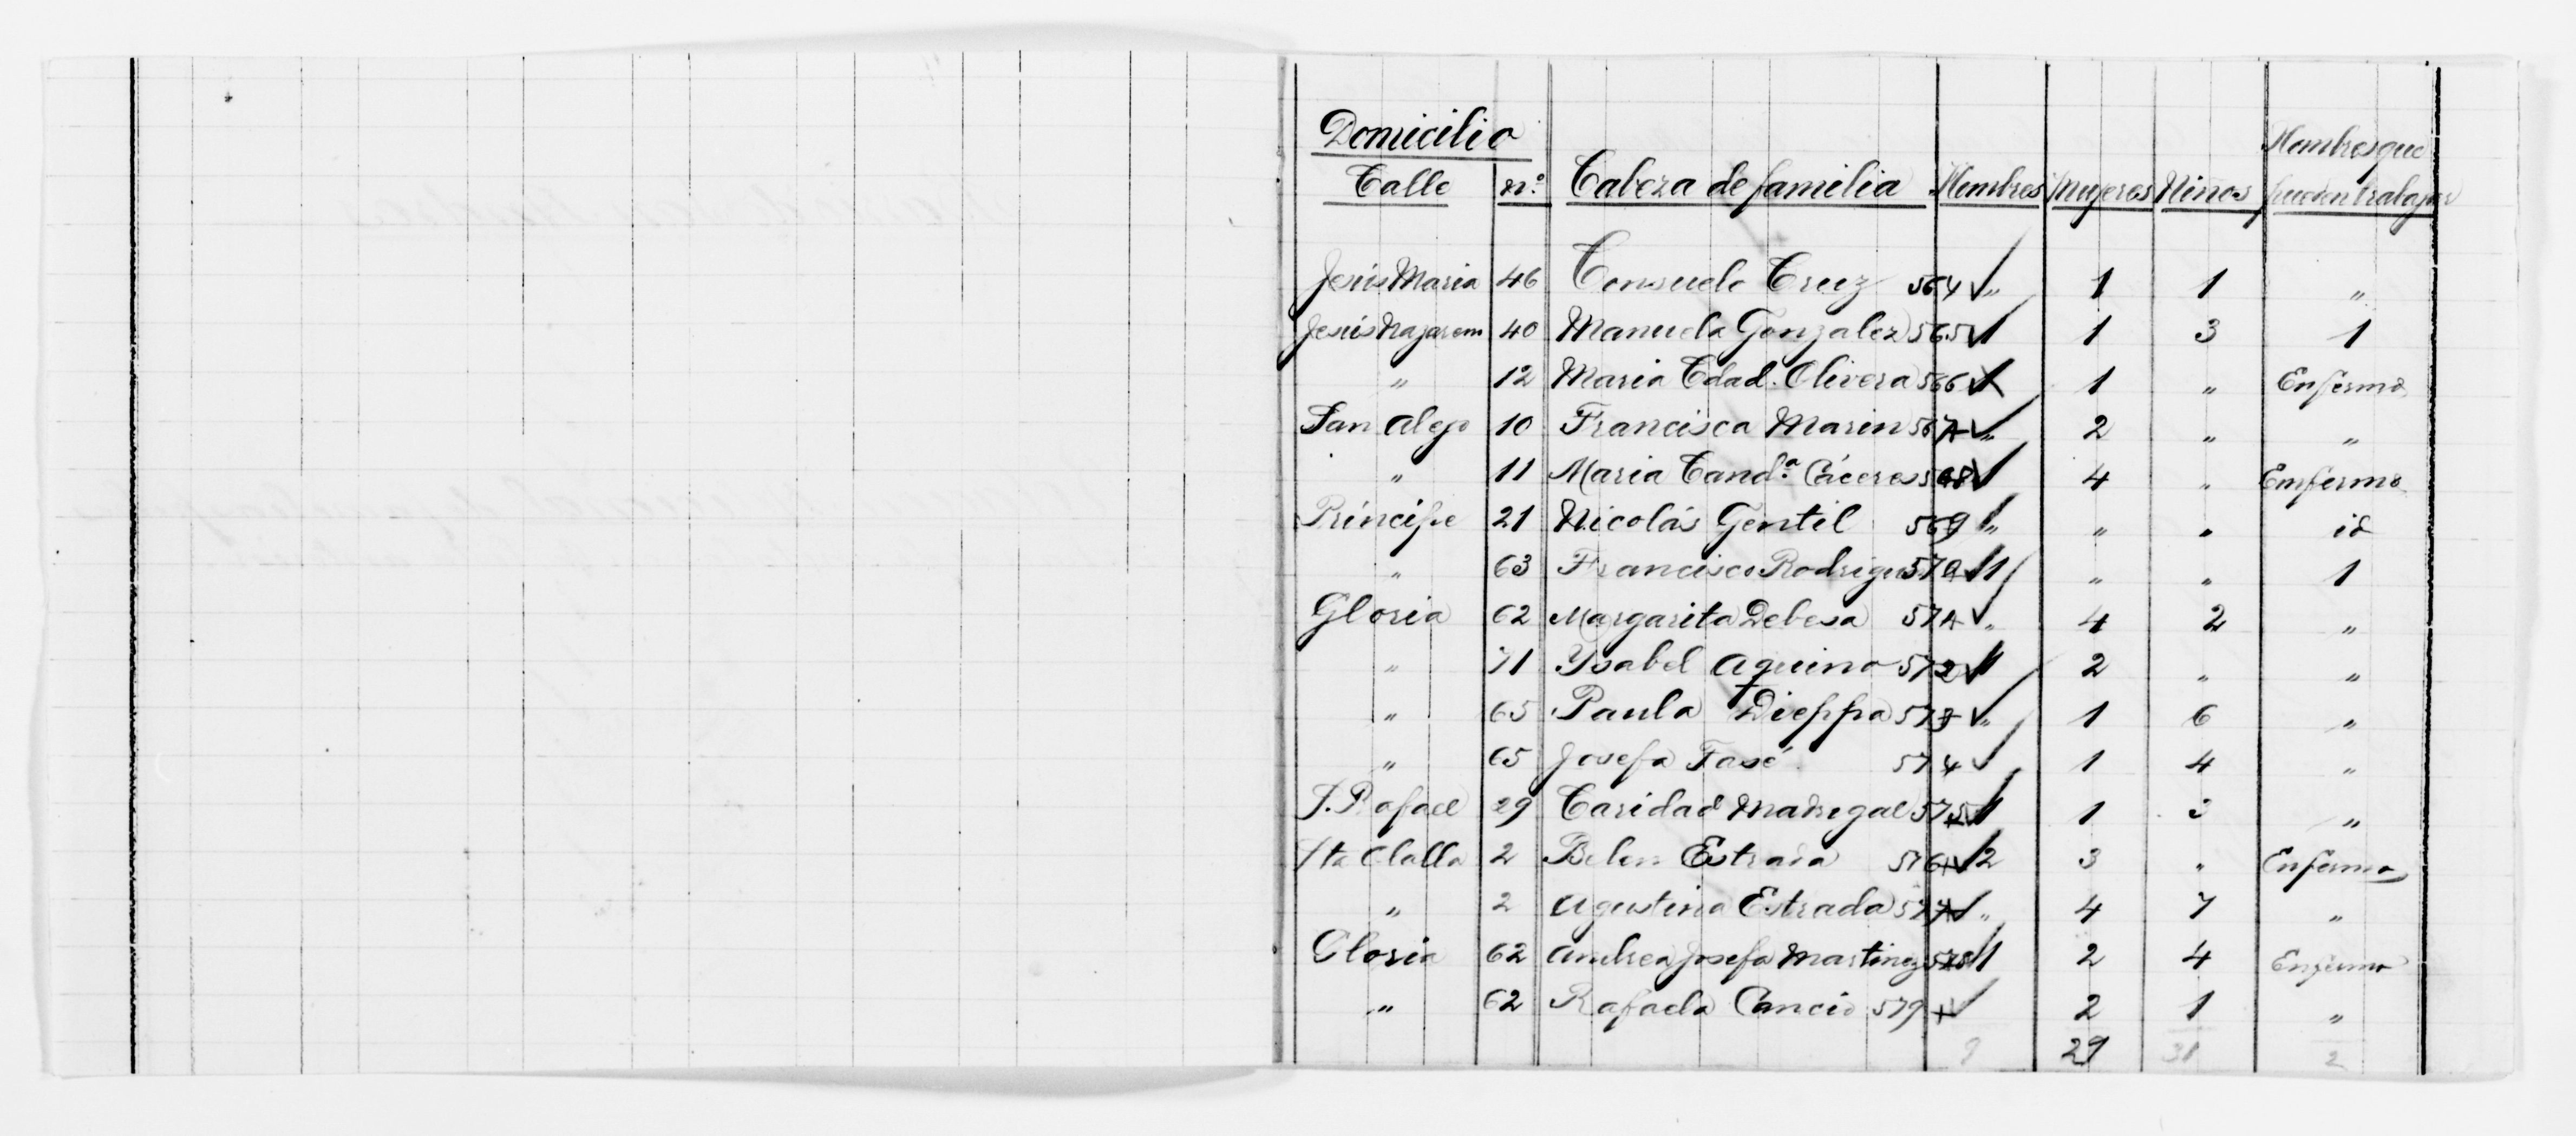 Domicilio Hombres que
Calle nº Cabeza de familia Hombres Mujeres Niños pueden trabajar
Jesús Maria 46 Consuelo Cruz 564 ✓ „ 1 1 „
Jesús Nazareno 40 Manuela Gonzalez 565 ✓ 1 1 3 1
„ 12 Maria Cdad. Olivera 566 ✓ 1 1 „ Enfermo
San Alejo 10 Francisca Marin 567 ✓ „ 2 „ „
„ 11 Maria Candª Cáceres 568 ✓ 1 4 „ Emfermo
Príncipe 21 Nicolás Gentil 569 „ „ „ id
„ 63 Francisco Rodriguez 570 ✓ 1 „ „ 1
Gloria 62 Margarita Debesa 571 ✓ „ 4 2 „
„ 71 Ysabel Aquino 572 ✓ 1 2 „ „
„ 65 Paula Dieppa 573 ✓ „ 1 6 „
„ 65 Josefa Fasé 574 ✓ 1 4 „
S. Rafael 29 Caridad Madrigal 575 ✓ 1 1 3 „
Sta Olalla 2 Belen Estrada 576 ✓ 2 3 „ Enfermo
„ 2 Agustina Estrada 577 ✓ „ 4 7 „
Gloria 62 Andrea Josefa Martinez 578 1 2 4 Enfermo
„ 62 Rafaela Cancio 579 ✓ 2 1 „
9 29 31 2